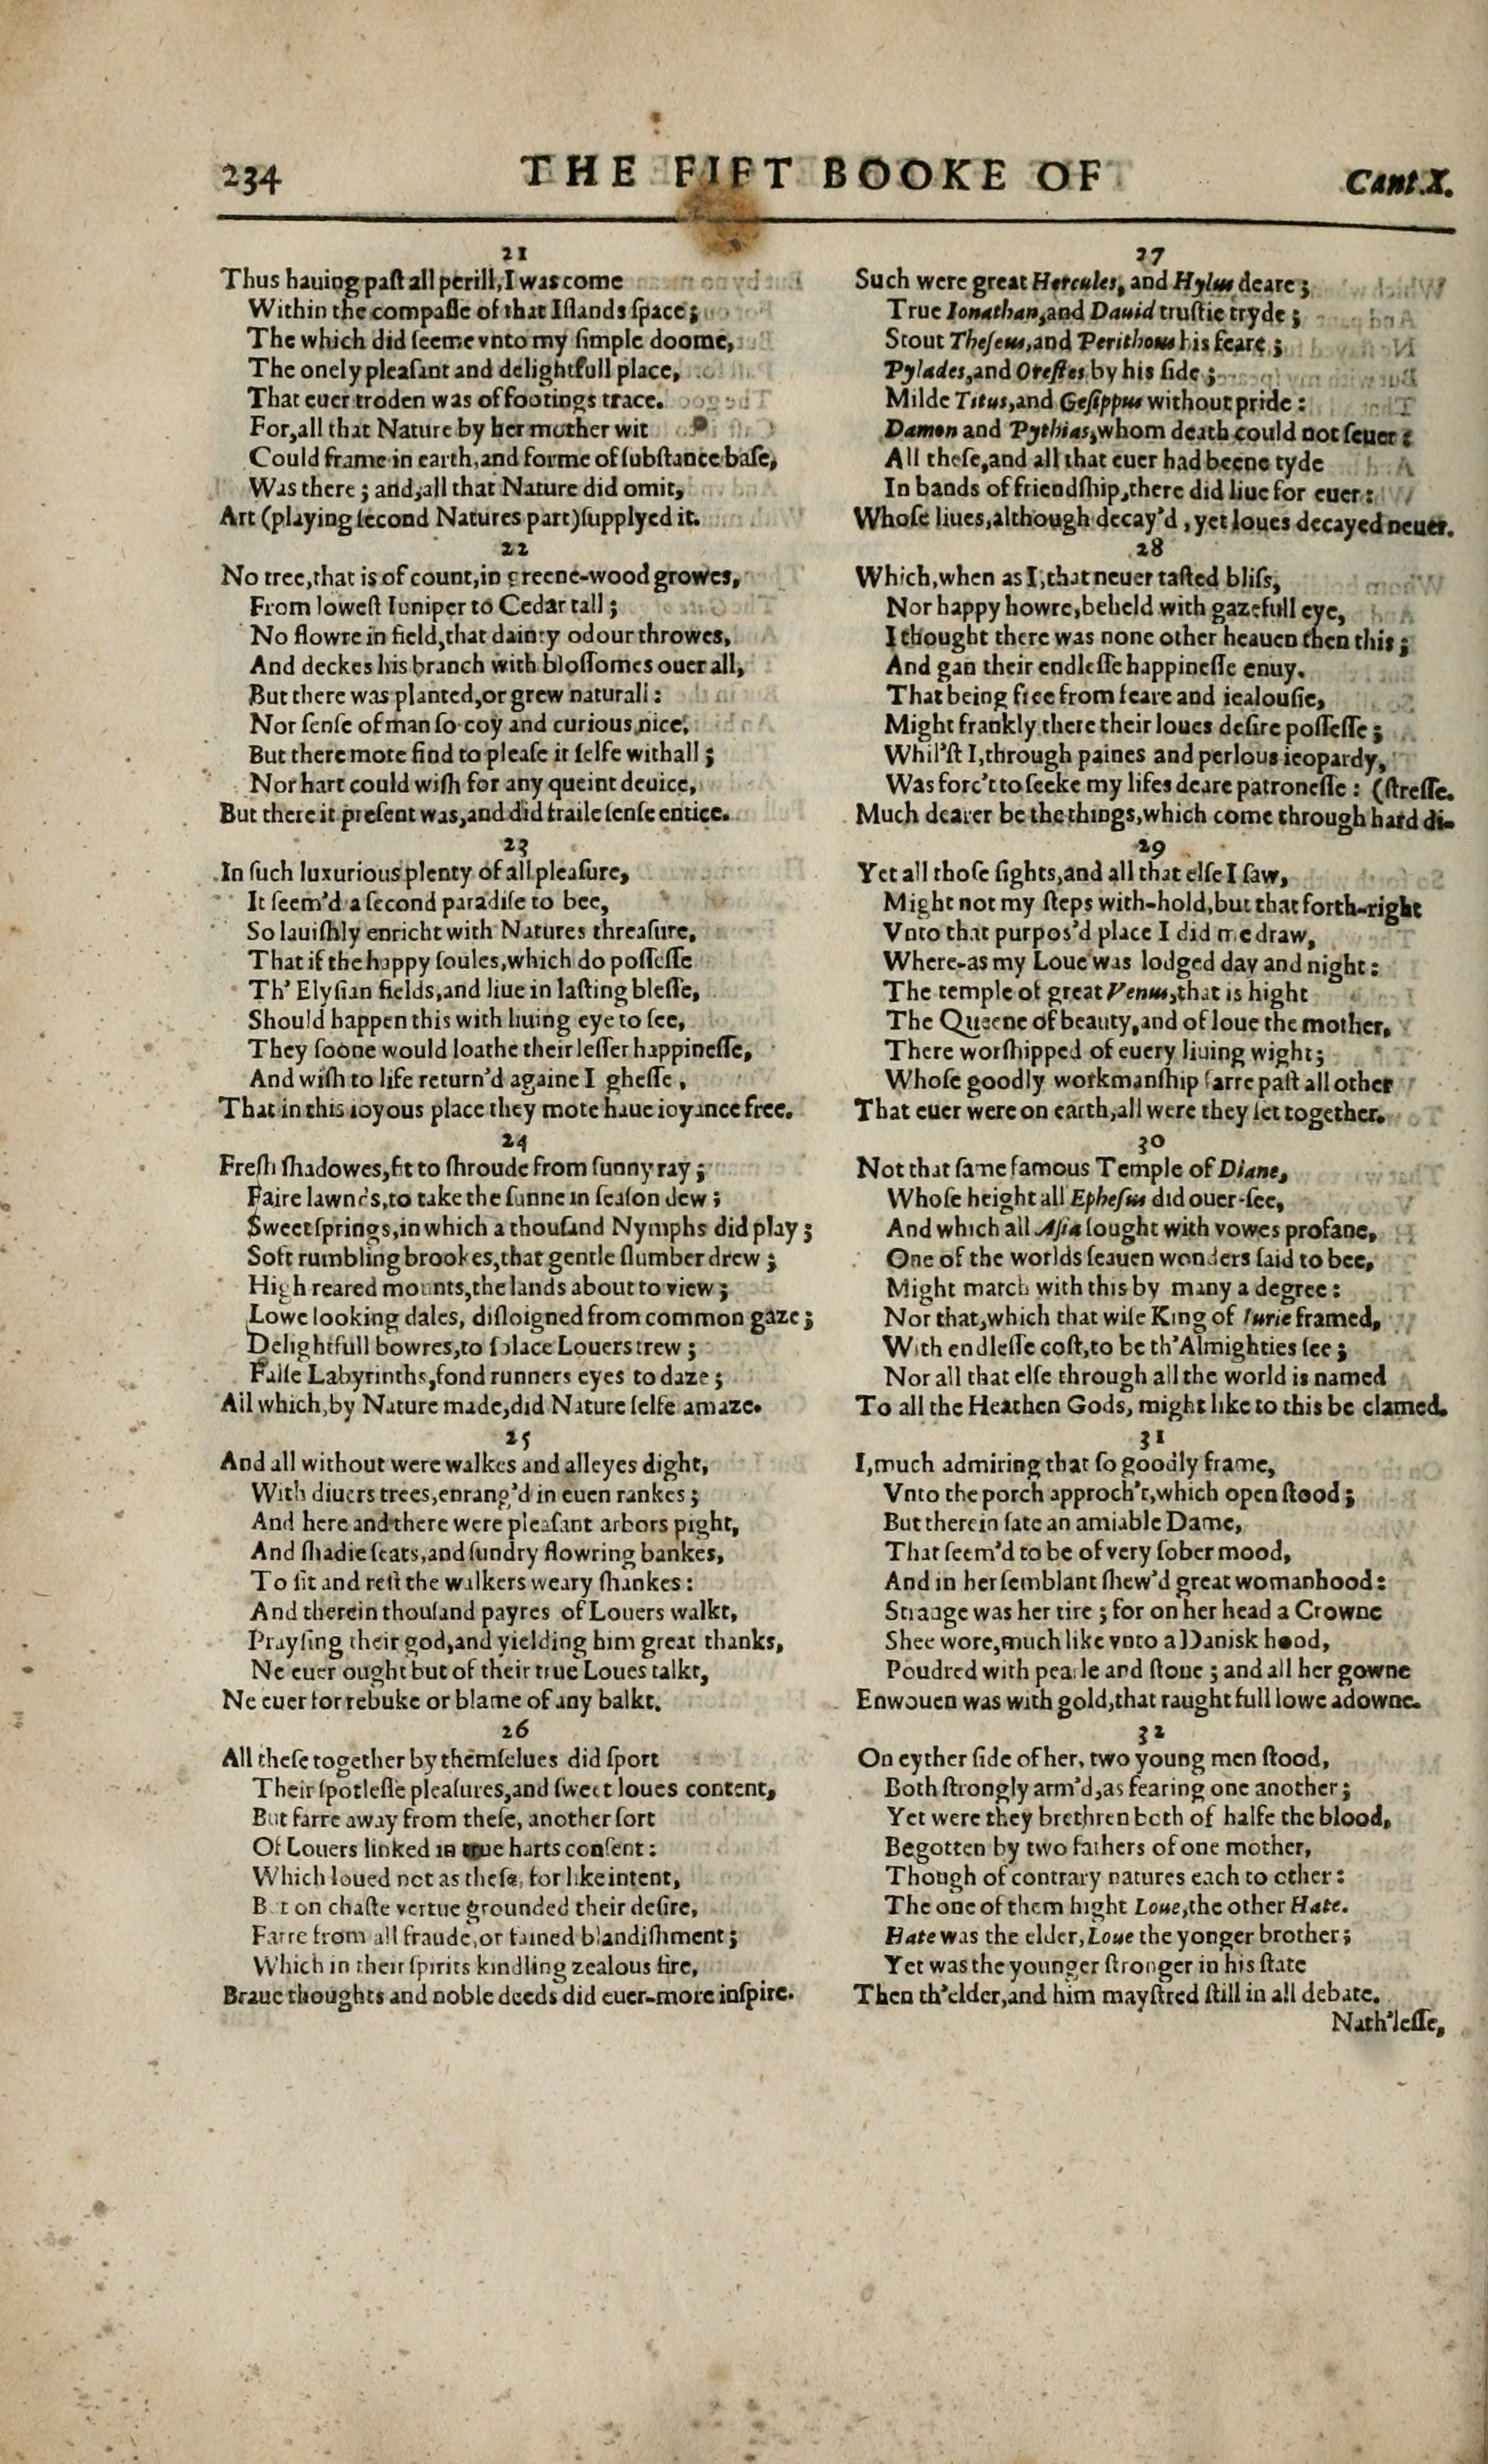 234 THE FIFT BOOKE OF Cant.X.
21
Thus hauing past all perill, I was come
Within the compasse of that Islands space;
The which did seeme vnto my simple doome,
The onely pleasant and delightfull place,
That euer troden was of footings trace.
For, all that Nature by her mother wit
Could frame in earth, and forme of substance base,
Was there; and, all that Nature did omit,
Art (playing second Natures part) supplyed it.
22
No tree, that is of count, in greene-wood growes,
From lowest Iuniper to Cedar tall;
No flowre in field, that dainty odour throwes,
And deckes his branch with blossomes ouer all,
But there was planted, or grew naturall:
Nor sense of man so coy and curious nice,
But there mote find to please it selfe withall;
Nor hart could wish for any queint deuice,
But there it present was, and did fraile sense entice.
23
In such luxurious plenty of all pleasure,
It seem'd a second paradise to bee,
So lauishly enricht with Natures threasure,
That if the happy soules, which do possesse
Th' Elysian fields, and liue in lasting blesse,
Should happen this with liuing eye to see,
They soone would loathe their lesser happinesse,
And wish to life return'd againe I ghesse,
That in this ioyous place they mote haue ioyance free.
24
Fresh shadowes, fit to shroude from sunny ray;
Faire lawnes, to take the sunne in season dew;
Sweet springs, in which a thousand Nymphs did play;
Soft rumbling brookes, that gentle slumber drew;
High reared mounts, the lands about to view;
Lowe looking dales, disloigned from common gaze;
Delightfull bowres, to solace Louers trew;
False Labyrinths, fond runners eyes to daze;
All which, by Nature made, did Nature selfe amaze.
25
And all without were walkes and alleyes dight,
With diuers trees, enrang'd in euen rankes;
And here and there were pleasant arbors pight,
And shadie seats, and sundry flowring bankes,
To sit and rest the walkers weary shankes:
And therein thousand payres of Louers walkt,
Praysing their god, and yielding him great thanks,
Ne euer ought but of their true Loues talkt,
Ne euer for rebuke or blame of any balkt.
26
All these together by themselues did sport
Their spotlesse pleasures, and sweet loues content,
But farre away from these, another sort
Of Louers linked in true harts consent:
Which loued not as these, for like intent,
But on chaste vertue grounded their desire,
Farre from all fraude, or fained blandishment;
Which in their spirits kindling zealous fire,
Braue thoughts and noble deeds did euer-more inspire.
27
Such were great Hercules, and Hylus deare;
True Ionathan, and Dauid trustie tryde;
Stout Theseus, and Perithous his feare;
Pylades, and Orestes by his side;
Milde Titus, and Gesippus without pride:
Damon and Pythias, whom death could not seuer:
All these, and all that euer had beene tyde
In bands of friendship, there did liue for euer:
Whose liues, although decay'd, yet loues decayed neuer.
28
Which, when as I, that neuer tasted bliss,
Nor happy howre, beheld with gazefull eye,
I thought there was none other heauen then this;
And gan their endlesse happinesse enuy.
That being free from feare and iealousie,
Might frankly there their loues desire possesse;
Whil'st I, through paines and perlous ieopardy,
Was forc't to seeke my lifes deare patronesse: (stresse.
Much dearer be the things, which come through hard di-
29
Yet all those sights, and all that else I saw,
Might not my steps with-hold, but that forth-right
Vnto that purpos'd place I did me draw,
Where-as my Loue was lodged day and night:
The temple of great Venus, that is hight
The Queene of beauty, and of loue the mother,
There worshipped of euery liuing wight;
Whose goodly workmanship farre past all other
That euer were on earth, all were they set together.
30
Not that same famous Temple of Diane,
Whose height all Ephesus did ouer-see,
And which all Asia sought with vowes profane,
One of the worlds seauen wonders said to bee,
Might match with this by many a degree:
Nor that, which that wise King of Iurie framed,
With endlesse cost, to be th'Almighties see;
Nor all that else through all the world is named
To all the Heathen Gods, might like to this be clamed.
31
I, much admiring that so goodly frame,
Vnto the porch approch't, which open stood;
But therein sate an amiable Dame,
That seem'd to be of very sober mood,
And in her semblant shew'd great womanhood:
Strange was her tire; for on her head a Crowne
Shee wore, much like vnto a Danisk hood,
Poudred with pearle and stone; and all her gowne
Enwouen was with gold, that raught full lowe adowne.
32
On eyther side of her, two young men stood,
Both strongly arm'd, as fearing one another;
Yet were they brethren both of halfe the blood,
Begotten by two fathers of one mother,
Though of contrary natures each to other:
The one of them hight Loue, the other Hate.
Hate was the elder, Loue the yonger brother;
Yet was the younger stronger in his state
Then th'elder, and him maystred still in all debate.
Nath'lesse,